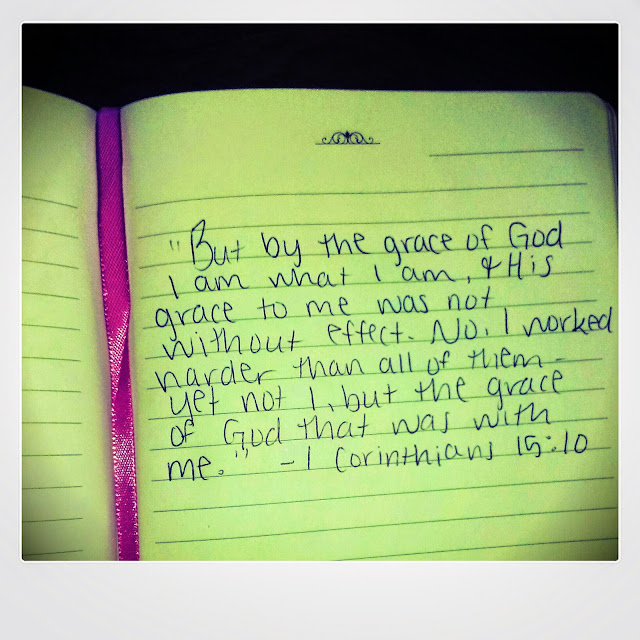 "But by the grace of God
I am what I am, & His
grace to me was not
without effect. No, I worked
harder than all of them -
yet not I, but the grace
of God that was with
me." - 1 Corinthians 15:10